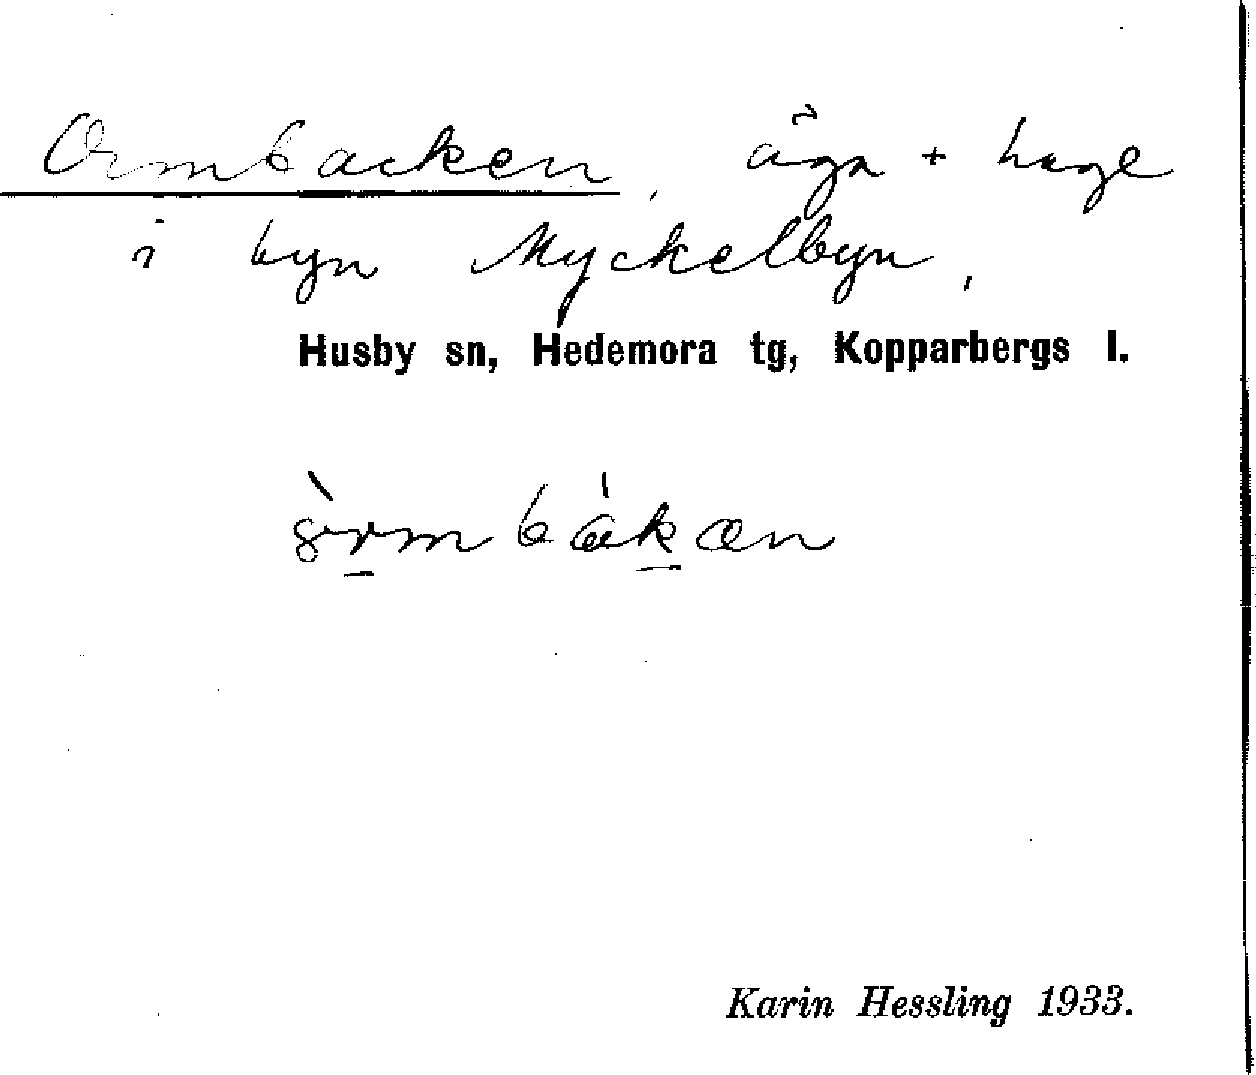 Ormbacken, äga + hage
i byn Myckelbyn,
Husby sn, Hedemora tg, Kopparbergs l.
Karin Hessling 1933.